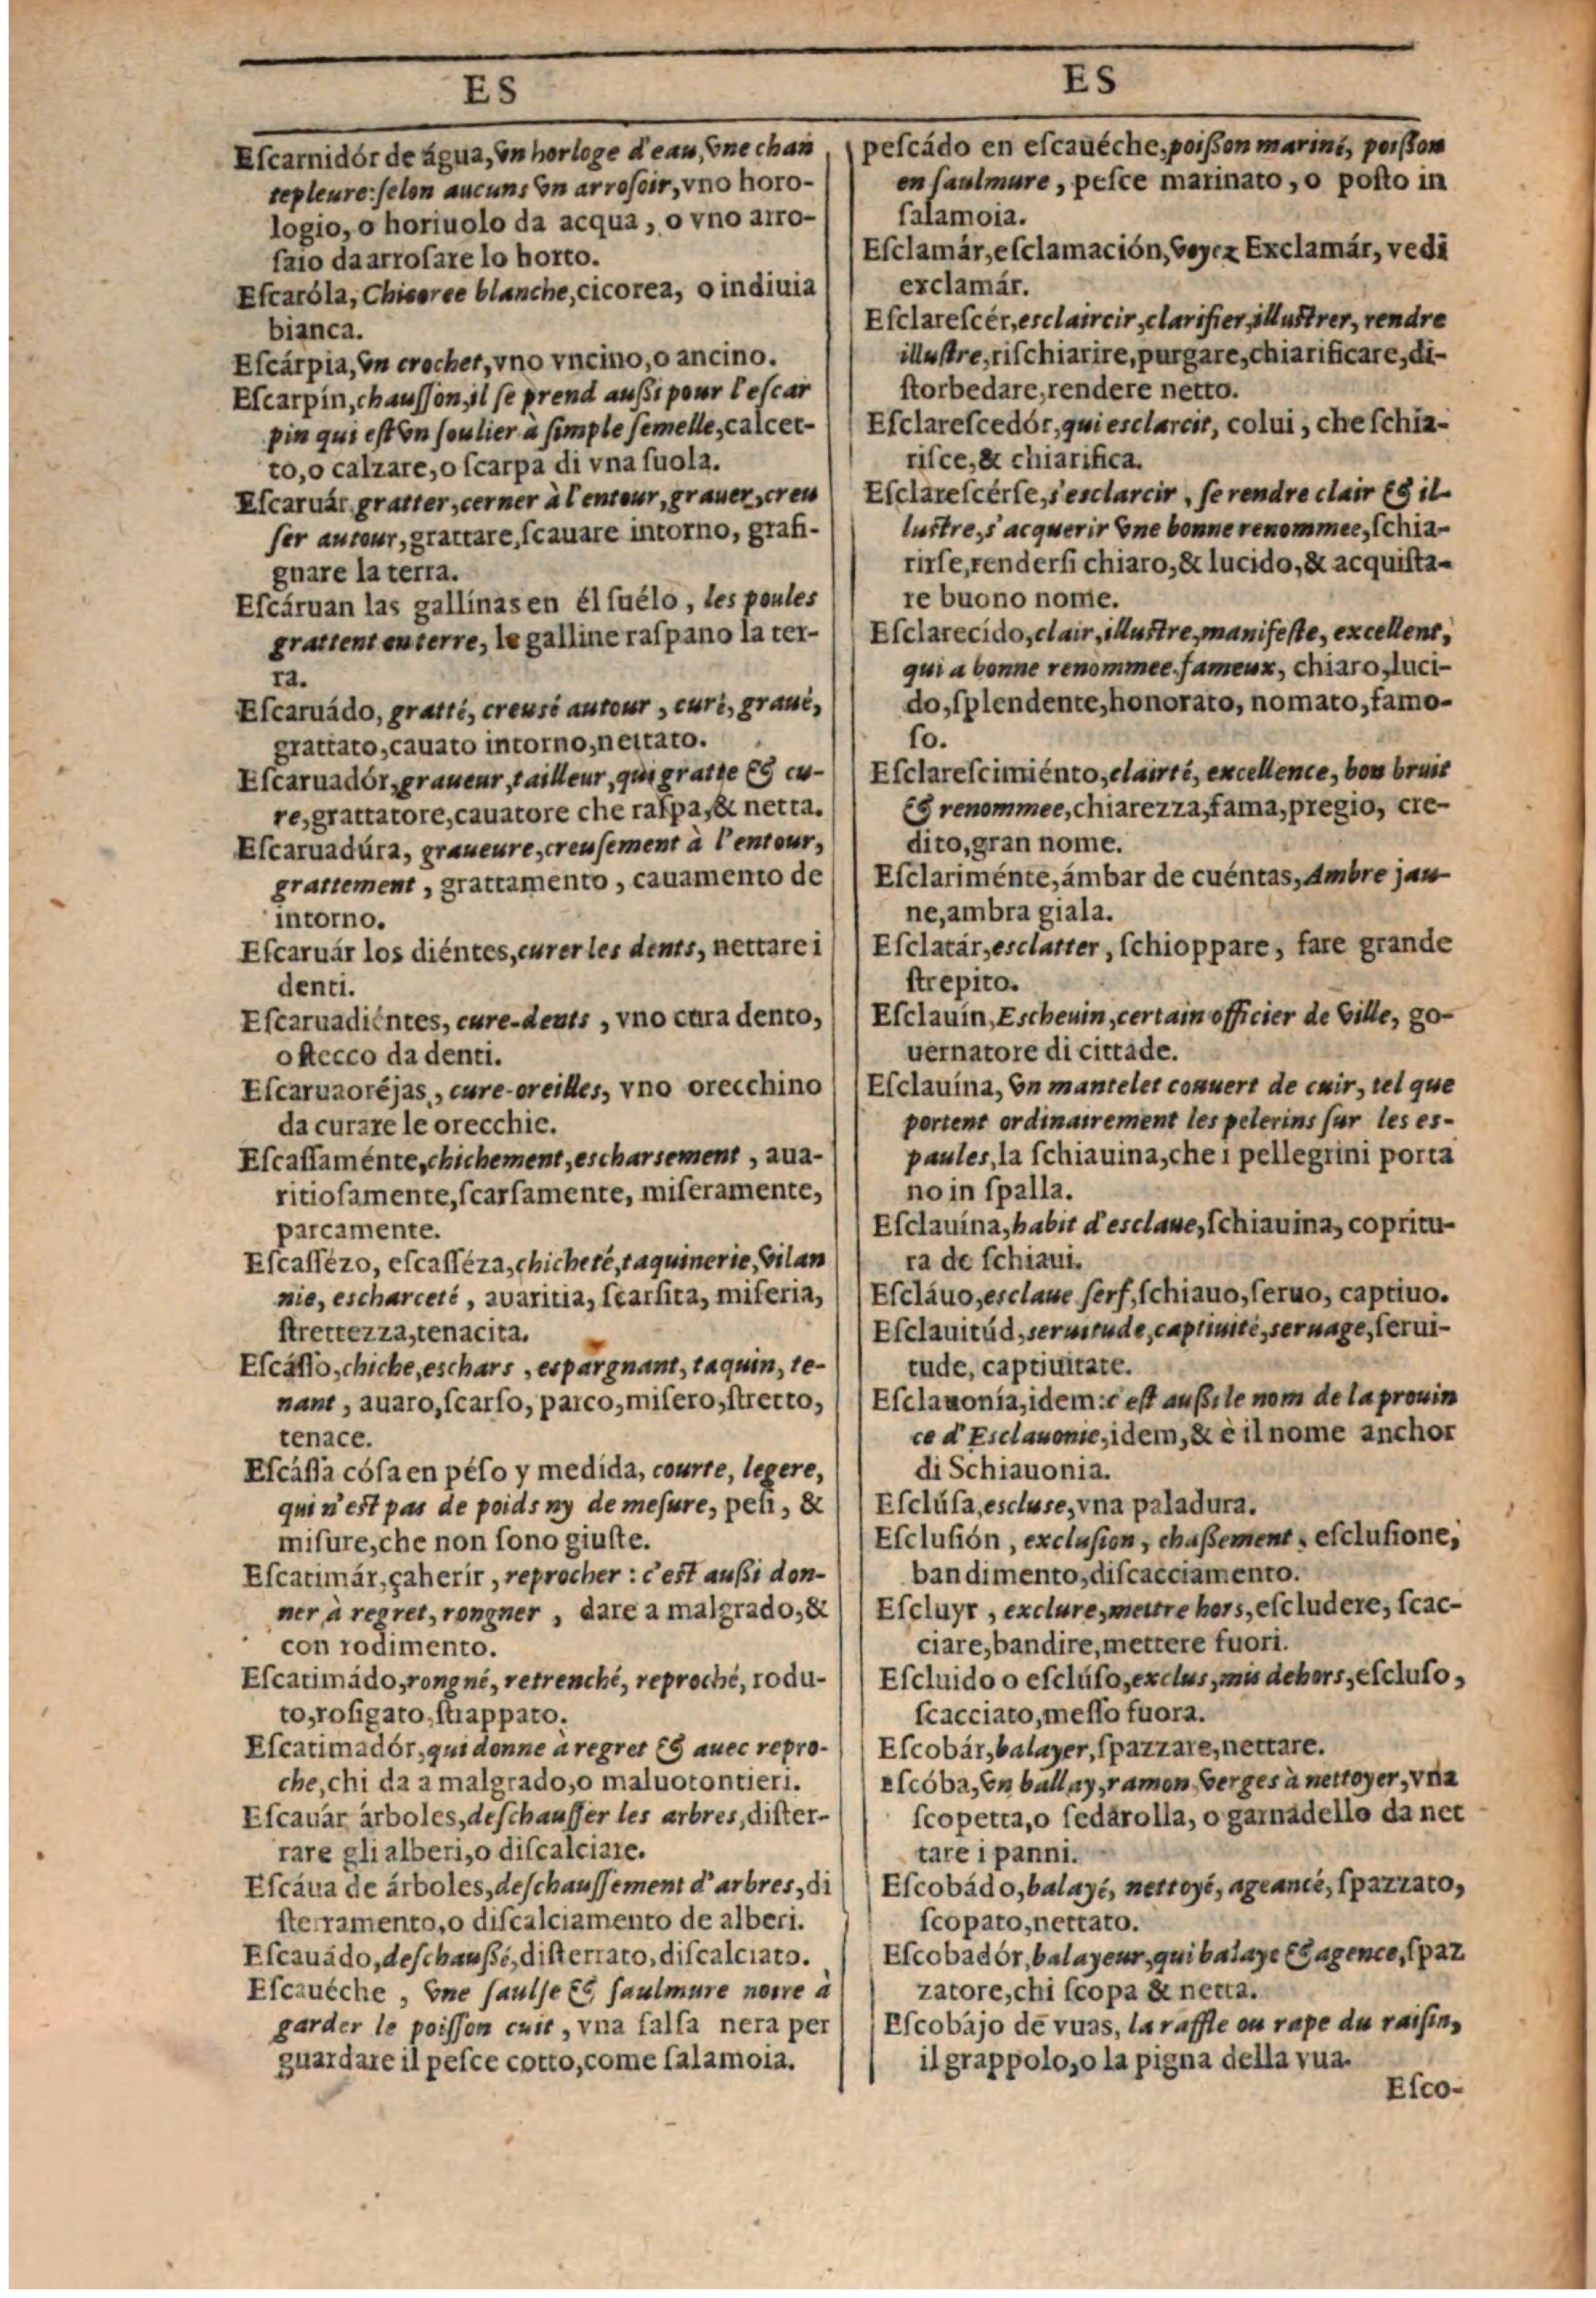 ES
Eſcarnidór de água, vn horloge d'eau, vne chan
tepleure: ſelon aucuns vn arroſoir, vno horo-
logio, o horiuolo da acqua, o vno arro-
ſaio da arroſare lo horto.
Eſcaróla, Chicoree blanche, cicorea, o indiuia
bianca.
Eſcárpia, vn crochet, vno vncino, o ancino.
Eſcarpín, chauſſon, il ſe prend auſsi pour l'eſcar
pin qui eſt vn ſoulier à ſimple ſemelle, calcet-
to, o calzare, o ſcarpa di vna ſuola.
Eſcaruár, gratter, cerner à l'entour, grauer, creu
ſer autour, grattare, ſcauare intorno, grafi-
gnare la terra.
Eſcáruan las gallínas en él ſuélo, les poules
grattent en terre, le galline raſpano la ter-
ra.
Eſcaruádo, gratté, creusé autour, curé, graué,
grattato, cauato intorno, nettato.
Eſcaruadór, graueur, tailleur, qui gratte & cu-
re, grattatore, cauatore che raſpa, & netta.
Eſcaruadúra, graueure, creuſement à l'entour,
grattement, grattamento, cauamento de
intorno.
Eſcaruár los diéntes, curer les dents, nettare i
denti.
Eſcaruadiéntes, cure-dents, vno cura dento,
o ſtecco da denti.
Eſcaruaoréjas, cure-oreilles, vno orecchino
da curare le orecchie.
Eſcaſſaménte, chichement, escharsement, aua-
ritioſamente, ſcarſamente, miſeramente,
parcamente.
Eſcaſſézo, eſcaſſéza, chicheté, taquinerie, vilan
nie, escharceté, avaritia, ſcarſita, miſeria,
ſtrettezza, tenacita.
Eſcáſſo, chiche, eschars, espargnant, taquin, te-
nant, auaro, ſcarſo, parco, miſero, ſtretto,
tenace.
Eſcáſſa cóſa en péſo y medída, courte, legere,
qui n'eſt pas de poids ny de meſure, peſi, &
miſure, che non ſono giuſte.
Eſcatimár, çaherír, reprocher: c'eſt auſsi don-
ner à regret, rongner, dare a malgrado, &
con rodimento.
Eſcatimádo, rongné, retrenché, reproché, rodu-
to, roſigato, ſtrappato.
Eſcatimadór, qui donne à regret & auec repro-
che, chi da a malgrado, o maluotontieri.
Eſcauár árboles, deſchauſſer les arbres, diſter-
rare gli alberi, o diſcalciare.
Eſcáua de árboles, deſchauſſement d'arbres, di
ſterramento, o diſcalciamento de alberi.
Eſcauádo, deſchauſsé, diſterrato, diſcalciato.
Eſcauéche, vne ſaulſe & ſaulmure noire à
garder le poiſſon cuit, vna ſalſa nera per
guardare il peſce cotto, come ſalamoia.
ES
peſcádo en eſcauéche, poiſson mariné, poiſson
en ſaulmure, peſce marinato, o poſto in
ſalamoia.
Eſclamár, eſclamación, voyez Exclamár, vedi
exclamár.
Eſclareſcér, esclaircir, clarifier, illuſtrer, rendre
illuſtre, riſchiarire, purgare, chiarificare, di-
ſtorbedare, rendere netto.
Eſclareſcedór, qui esclarcit, colui, che ſchia-
riſce, & chiarifica.
Eſclareſcérſe, s'esclarcir, ſe rendre clair & il-
luſtre, s'acquerir vne bonne renommee, ſchia-
rirſe, renderſi chiaro, & lucido, & acquiſta-
re buono nome.
Eſclarecído, clair, illuſtre, manifeſte, excellent,
qui a bonne renommee, fameux, chiaro, luci-
do, ſplendente, honorato, nomato, famo-
ſo.
Eſclareſcimiénto, clairté, excellence, bon bruit
& renommee, chiarezza, fama, pregio, cre-
dito, gran nome.
Eſclariménte, ámbar de cuéntas, Ambre jau-
ne, ambra giala.
Eſclatár, esclatter, ſchioppare, fare grande
ſtrepito.
Eſclauín, Escheuin, certain officier de ville, go-
uernatore di cittade.
Eſclauína, vn mantelet couuert de cuir, tel que
portent ordinairement les pelerins ſur les es-
paules, la ſchiauina, che i pellegrini porta
no in ſpalla.
Eſclauína, habit d'esclaue, ſchiauina, copritu-
ra de ſchiaui.
Eſcláuo, esclaue ſerf, ſchiauo, ſeruo, captiuo.
Eſclauitúd, seruitude, captiuité, seruage, ſerui-
tude, captiuitate.
Eſclauonía, idem: c'eſt auſsi le nom de la prouin
ce d'Esclauonie, idem, & è il nome anchor
di Schiauonia.
Eſclúſa, escluse, vna paladura.
Eſcluſión, exclusion, chaſsement, eſcluſione,
bandimento, diſcacciamento.
Eſcluyr, exclure, mettre hors, eſcludere, ſcac-
ciare, bandire, mettere fuori.
Eſcluido o eſclúſo, exclus, mis dehors, eſcluſo,
ſcacciato, meſſo fuora.
Eſcobár, balayer, ſpazzare, nettare.
Eſcóba, vn ballay, ramon, verges à nettoyer, vna
ſcopetta, o ſedarolla, o garnadello da net
tare i panni.
Eſcobádo, balayé, nettoyé, ageancé, ſpazzato,
ſcopato, nettato.
Eſcobadór, balayeur, qui balaye & agence, ſpaz
zatore, chi ſcopa & netta.
Eſcobájo de vuas, la raffle ou rape du raiſin,
il grappolo, o la pigna della vua.
Eſco-